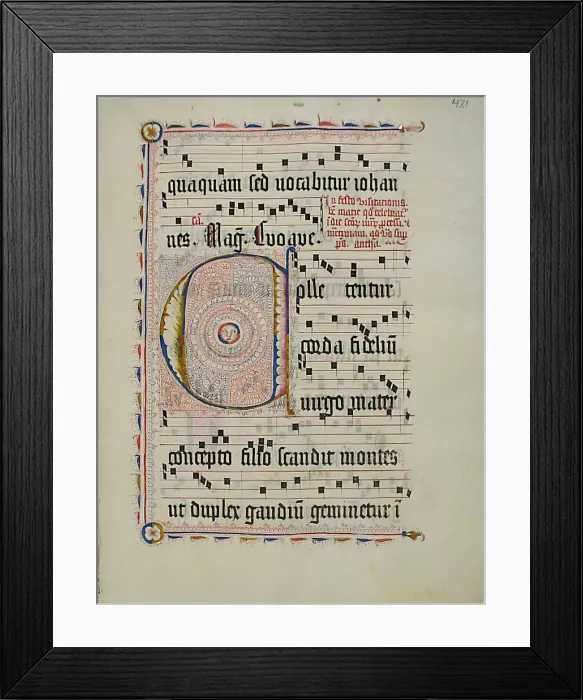 421
quaquam sed uocabitur iohan
nes. Mag̃. Euouae.
In festo visitationis.
olle tentur
corda fideliũ
uirgo mater
concepto filio scandit montes
ut duplex gaudiũ geminetur ĩ